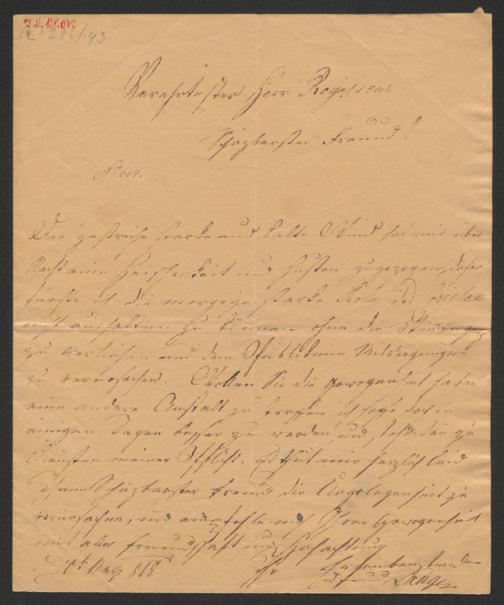 J.N. 128.042
Verehrtester Herr Regisseur
Schäzbarster Freund!
No
Der gestrige starke und kalte Wind hat mir über
Nacht eine Heiserkeit und Husten zugezogen, daher
fürchte ich die morgige starke Rolle des
nicht aushalten zu können ohne die Stimme ganz
zu verliehren und dem Publikum
zu verursachen. Wollen Sie die Gewogenheit haben
eine andere Anstalt zu treffen, ich hoffe doch in
einigen Tagen besser zu werden und
meiner Pflicht. Es thut mir herzlich leid
Ihnen Schäzbarster Freund die Ungelegenheit zu
verursachen, und empfehle mich Ihrer Gewogenheit
mit aller Freundschaft und Hochachtung
Ihr
Lange